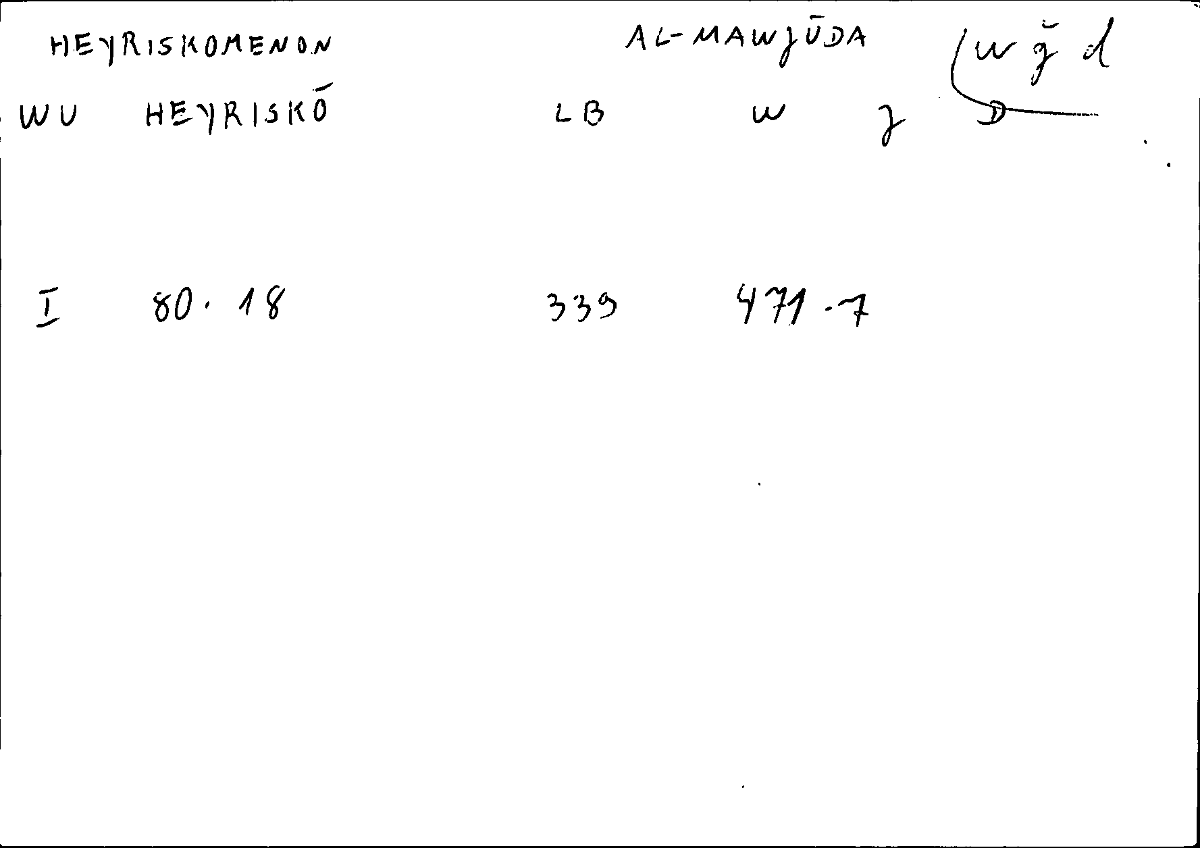 HEYRISKOMENON AL-MAWJŪDA w ǧ d
WU HEYRISKŌ LB W J D
I 80.18 339 471.7